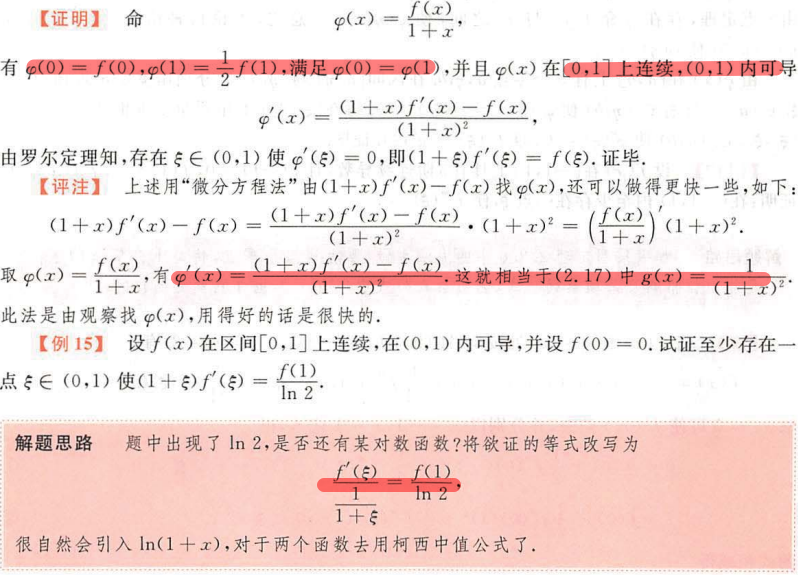 【证明】 命 φ(x) = f(x)/(1+x),
有 φ(0) = f(0),φ(1) = 1/2 f(1),满足 φ(0) = φ(1),并且 φ(x) 在[0,1]上连续,(0,1) 内可导
φ′(x) = ((1+x)f′(x) − f(x))/(1+x)²,
由罗尔定理知,存在 ξ ∈ (0,1) 使 φ′(ξ) = 0,即(1+ξ)f′(ξ) = f(ξ). 证毕.
【评注】 上述用“微分方程法”由(1+x)f′(x)−f(x) 找 φ(x),还可以做得更快一些,如下:
(1+x)f′(x) − f(x) = ((1+x)f′(x) − f(x))/(1+x)² · (1+x)² = (f(x)/(1+x))′(1+x)².
取 φ(x) = f(x)/(1+x),有 φ′(x) = ((1+x)f′(x) − f(x))/(1+x)². 这就相当于(2.17) 中 g(x) = 1/(1+x)².
此法是由观察找 φ(x),用得好的话是很快的.
【例 15】 设 f(x) 在区间[0,1]上连续,在(0,1) 内可导,并设 f(0) = 0. 试证至少存在一
点 ξ ∈ (0,1) 使(1+ξ)f′(ξ) = f(1)/ln 2.
解题思路 题中出现了 ln 2,是否还有某对数函数?将欲证的等式改写为
f′(ξ)/(1/(1+ξ)) = f(1)/ln 2,
很自然会引入 ln(1+x),对于两个函数去用柯西中值公式了.